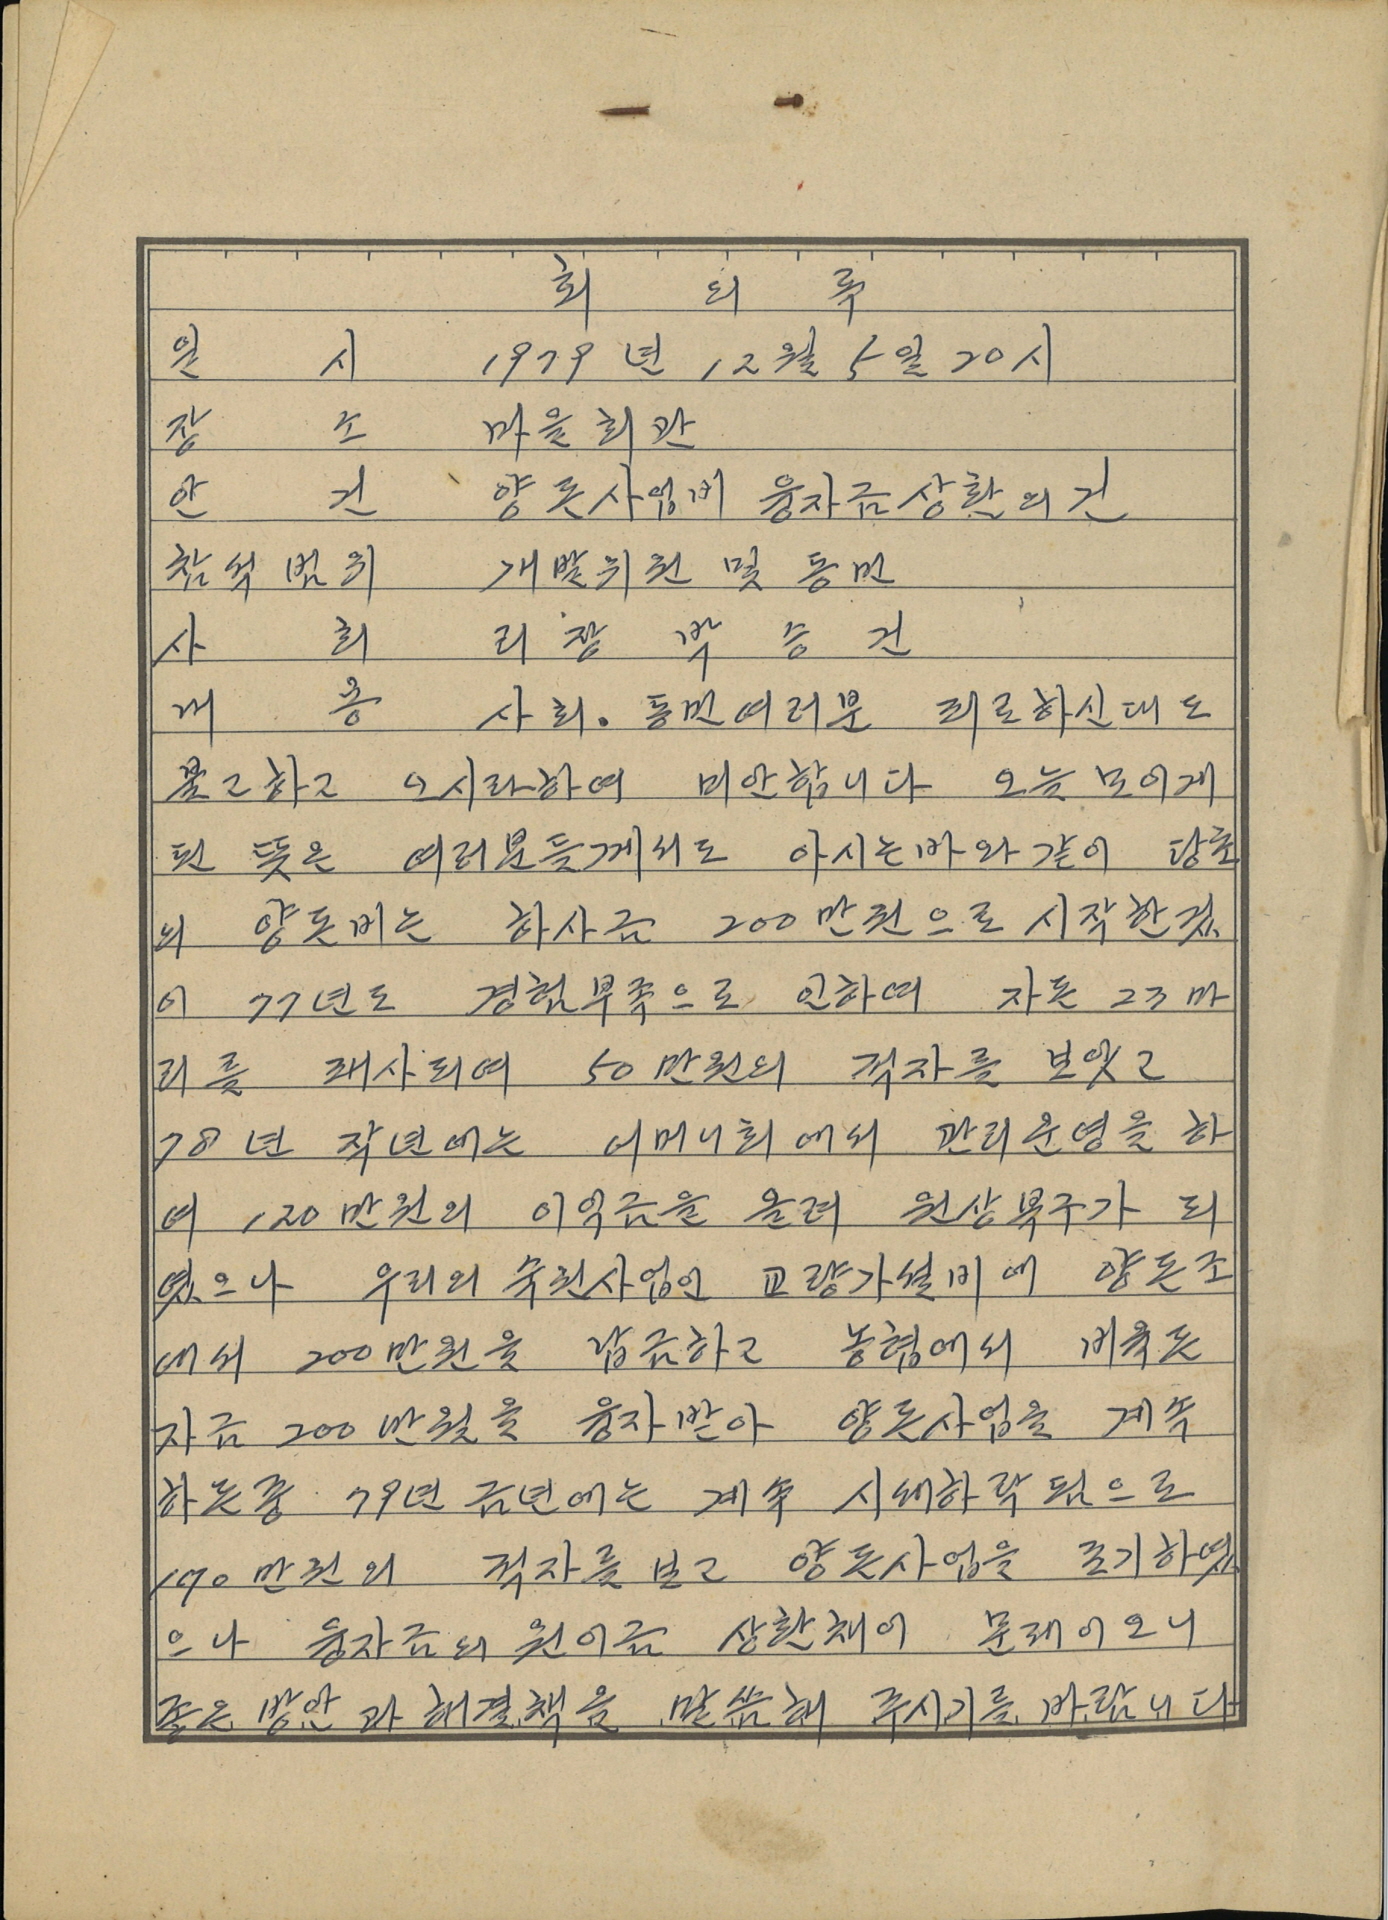 회 의 록
일 시 1979년 12월 5일 20시
장 소 마을회관
안 건 양돈사업비 융자금상환의건
참석범위 개발위원 및 동민
사 회 리장 박승건
내 용 사회. 동민여러분 피로하신대도
불고하고 오시라하여 미안합니다 오늘 모이게
된 뜻은 여러분들께서도 아시는바와같이 당초
의 양돈비는 하사금 200만원으로 시작한것
이 77년도 경험부족으로 인하여 자돈 23마
리를 패사되여 50만원의 적자를 보앗고
78년 작년에는 어머니회에서 관리운영을 하
여 120만원의 이익금을 올려 원상복구가 되
였으나 우리의 숙원사업인 교량가설비에 양돈조
에서 200만원을 잡금하고 농협에서 비육돈
자금 200만원을 융자받아 양돈사업을 계속
하든중 79년 금년에는 계속 시세하락됨으로
170만원의 적자를 보고 양돈사업을 포기하였
으나 융자금의 원이금 상환채이 문제이오니
좋은 방안과 해결책을 말씀해 주시기를 바랍니다